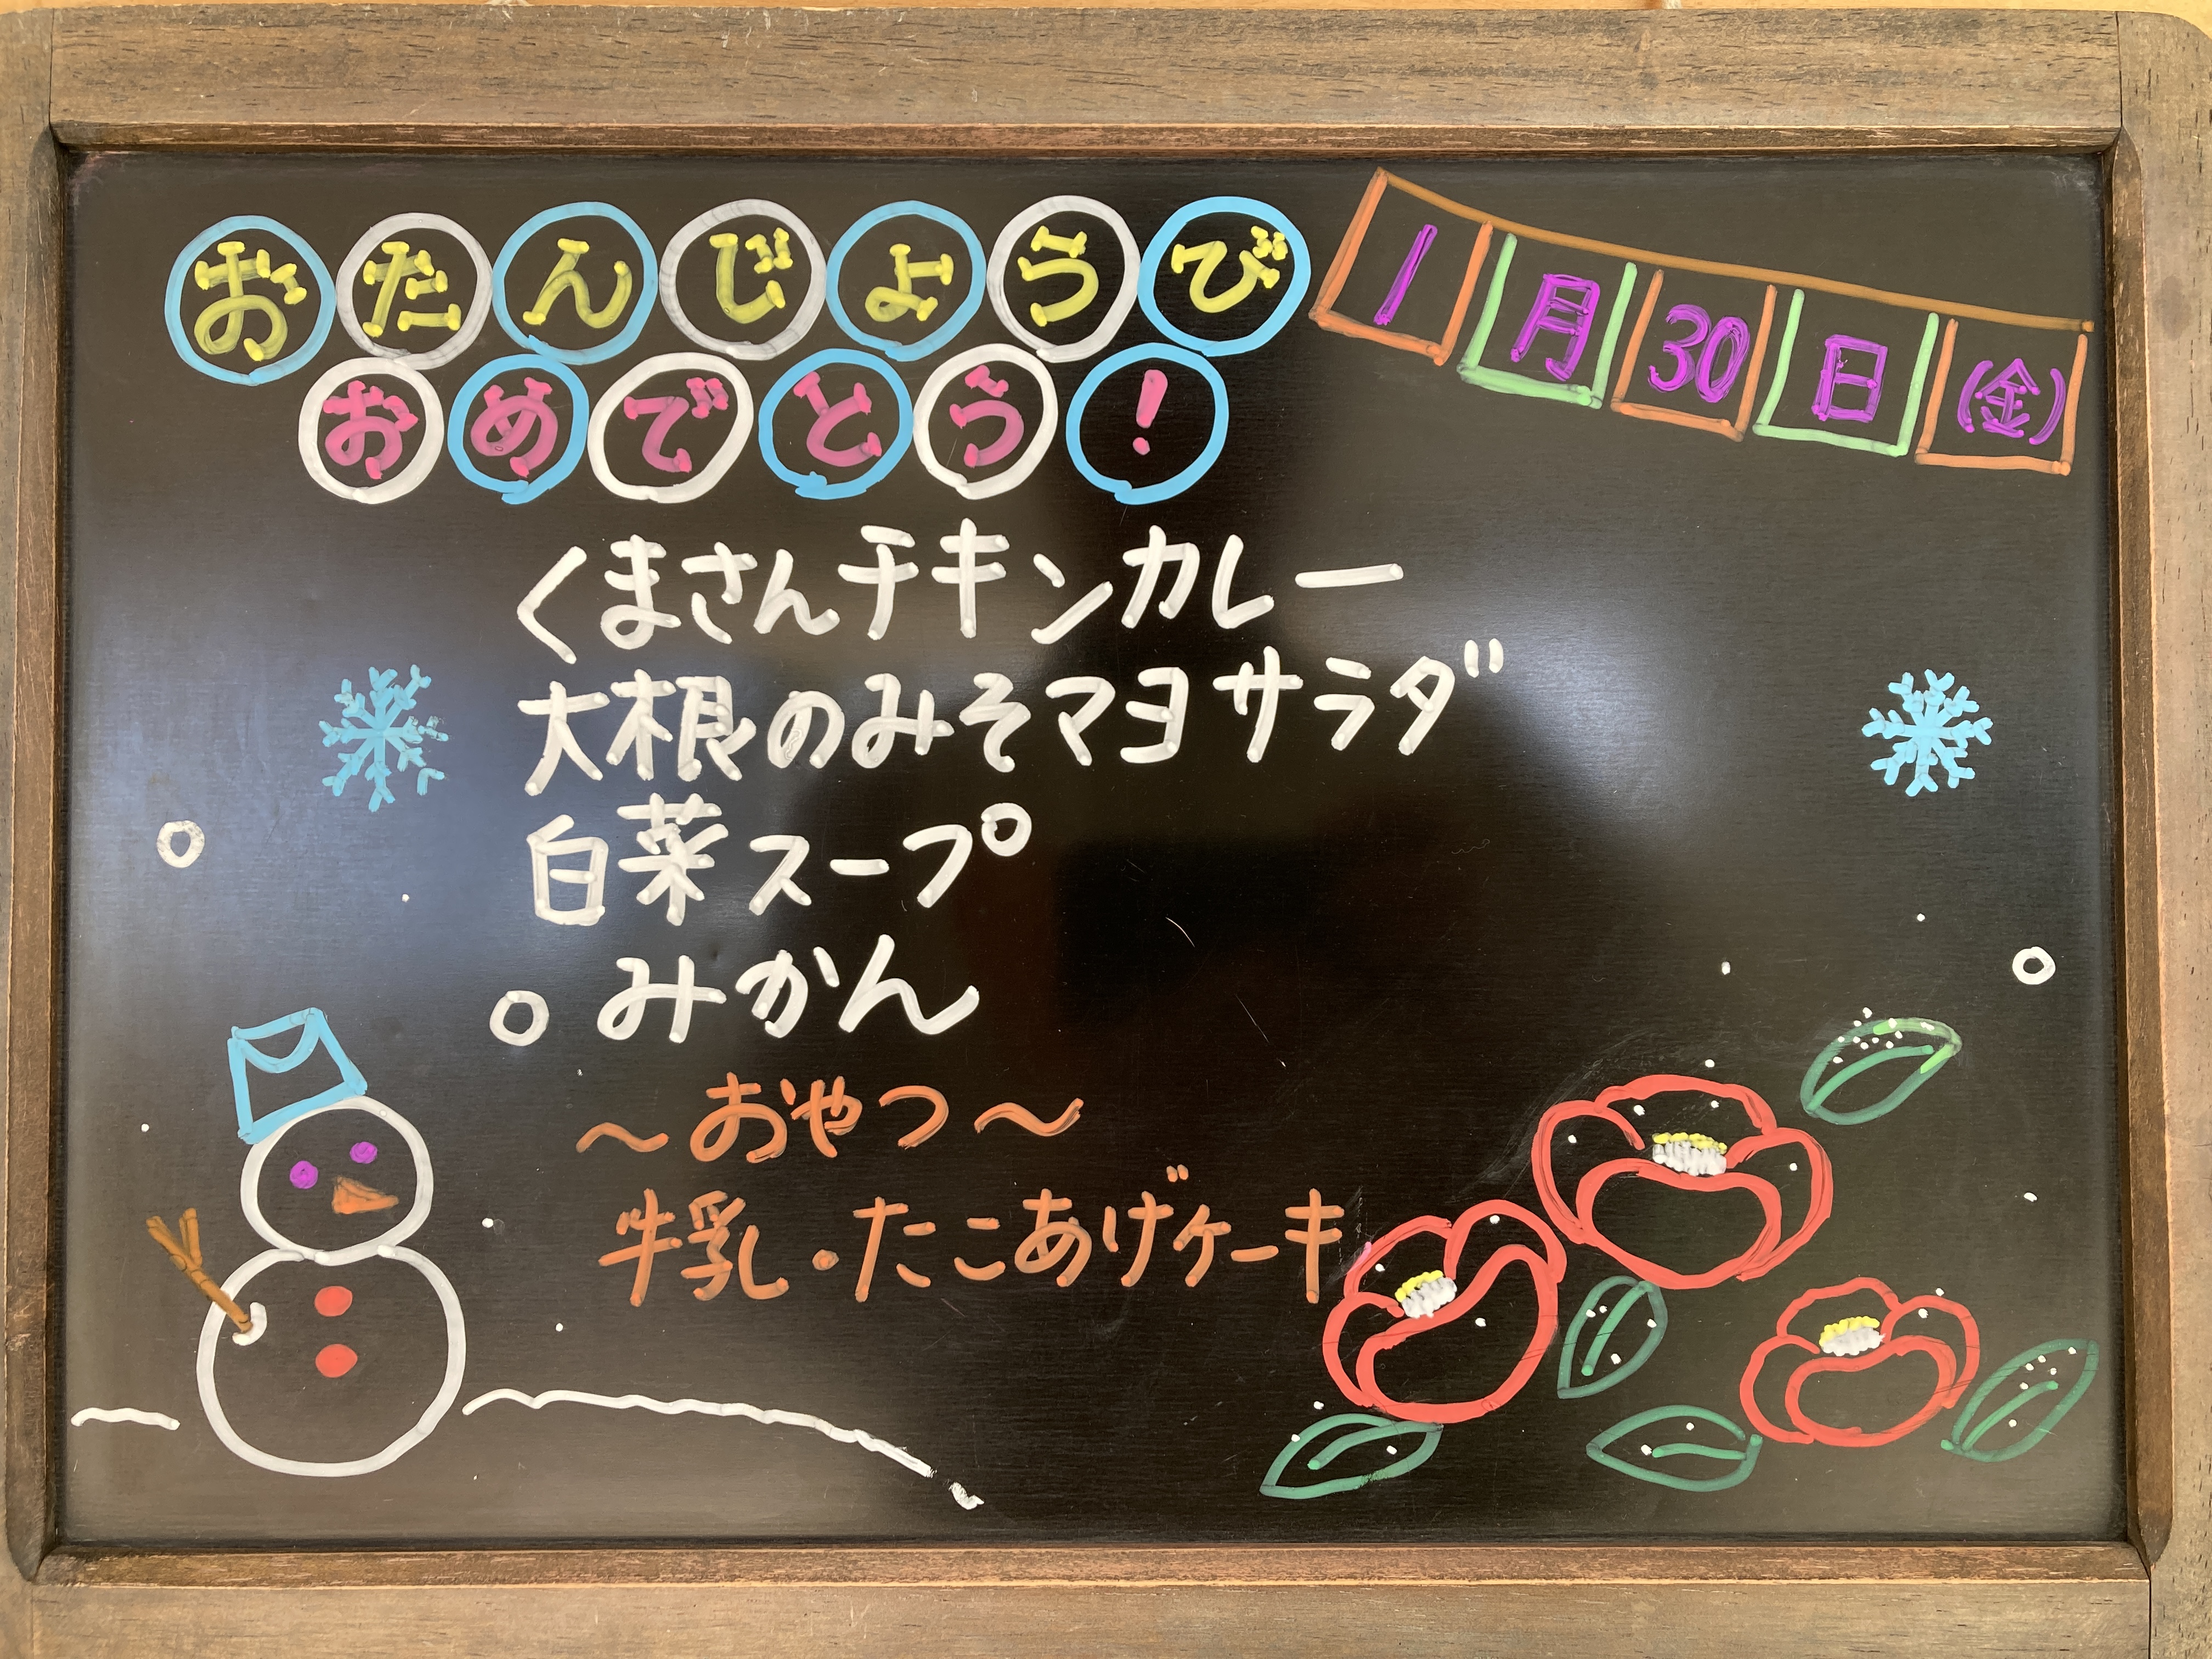 おたんじょうび
おめでとう!
1月30日(金)
くまさんチキンカレー
大根のみそマヨサラダ
白菜スープ
みかん
～おやつ～
牛乳・たこあげケーキ